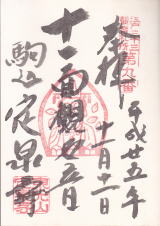 江戸三十三
観音札所
第九番
奉拝
平成廿五年
十一月十一日
十一面観世音
駒込
定泉寺